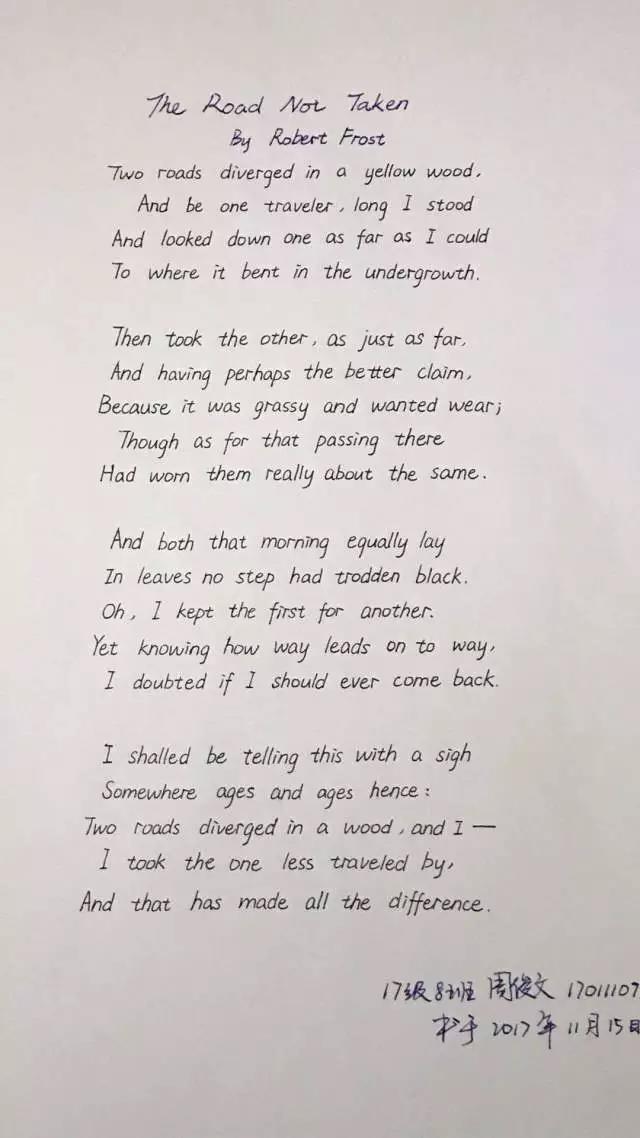 The Road Not Taken
By Robert Frost
Two roads diverged in a yellow wood,
And be one traveler, long I stood
And looked down one as far as I could
To where it bent in the undergrowth.
Then took the other, as just as far,
And having perhaps the better claim,
Because it was grassy and wanted wear;
Though as for that passing there
Had worn them really about the same.
And both that morning equally lay
In leaves no step had trodden black.
Oh, I kept the first for another.
Yet knowing how way leads on to way,
I doubted if I should ever come back.
I shalled be telling this with a sigh
Somewhere ages and ages hence:
Two roads diverged in a wood, and I—
I took the one less traveled by,
And that has made all the difference.
17级8班 周俊文 17011107
书于 2017年11月15日